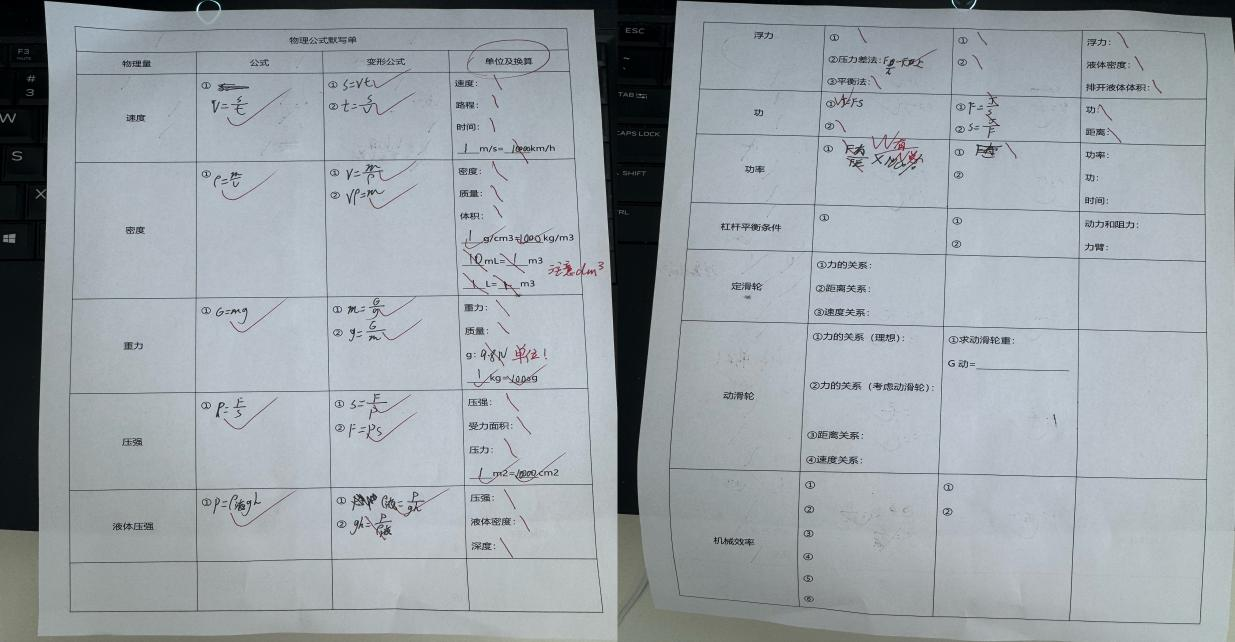 物理公式默写单
物理量
公式
变形公式
单位及换算
速度
①
V=s/t
① s=vt
② t=s/v
速度：
路程：
时间：
1 m/s= 1000km/h
密度
① ρ=m/v
① V=m/ρ
② Vρ=m
密度：
质量：
体积：
1 g/cm3=1000 kg/m3
10 mL= 1 m3
1 L= 1 m3
注意dm³
重力
① G=mg
① m=G/g
② g=G/m
重力：
质量：
g：9.8N 单位！
1 kg=1000g
压强
① P=F/S
① S=F/P
② F=PS
压强：
受力面积：
压力：
1 m2=10000cm2
液体压强
① P=ρ液gh
① ρ液=P/gh
② gh=P/ρ液
压强：
液体密度：
深度：
浮力
①
②压力差法：
③平衡法：
①
②
浮力：
液体密度：
排开液体体积：
功
①W=FS
②
① F=
② S=
功：
距离：
功率
①
W有
W总
X100%
①
②
功率：
功：
时间：
杠杆平衡条件
①
①
②
动力和阻力：
力臂：
定滑轮
①力的关系：
②距离关系：
③速度关系：
动滑轮
①力的关系（理想）：
②力的关系（考虑动滑轮）：
③距离关系：
④速度关系：
①求动滑轮重：
G 动=
机械效率
①
②
③
④
⑤
⑥
①
②
F3
MUTE
#
3
W
S
X
ESC
~
TAB
CAPS LOCK
SHIFT